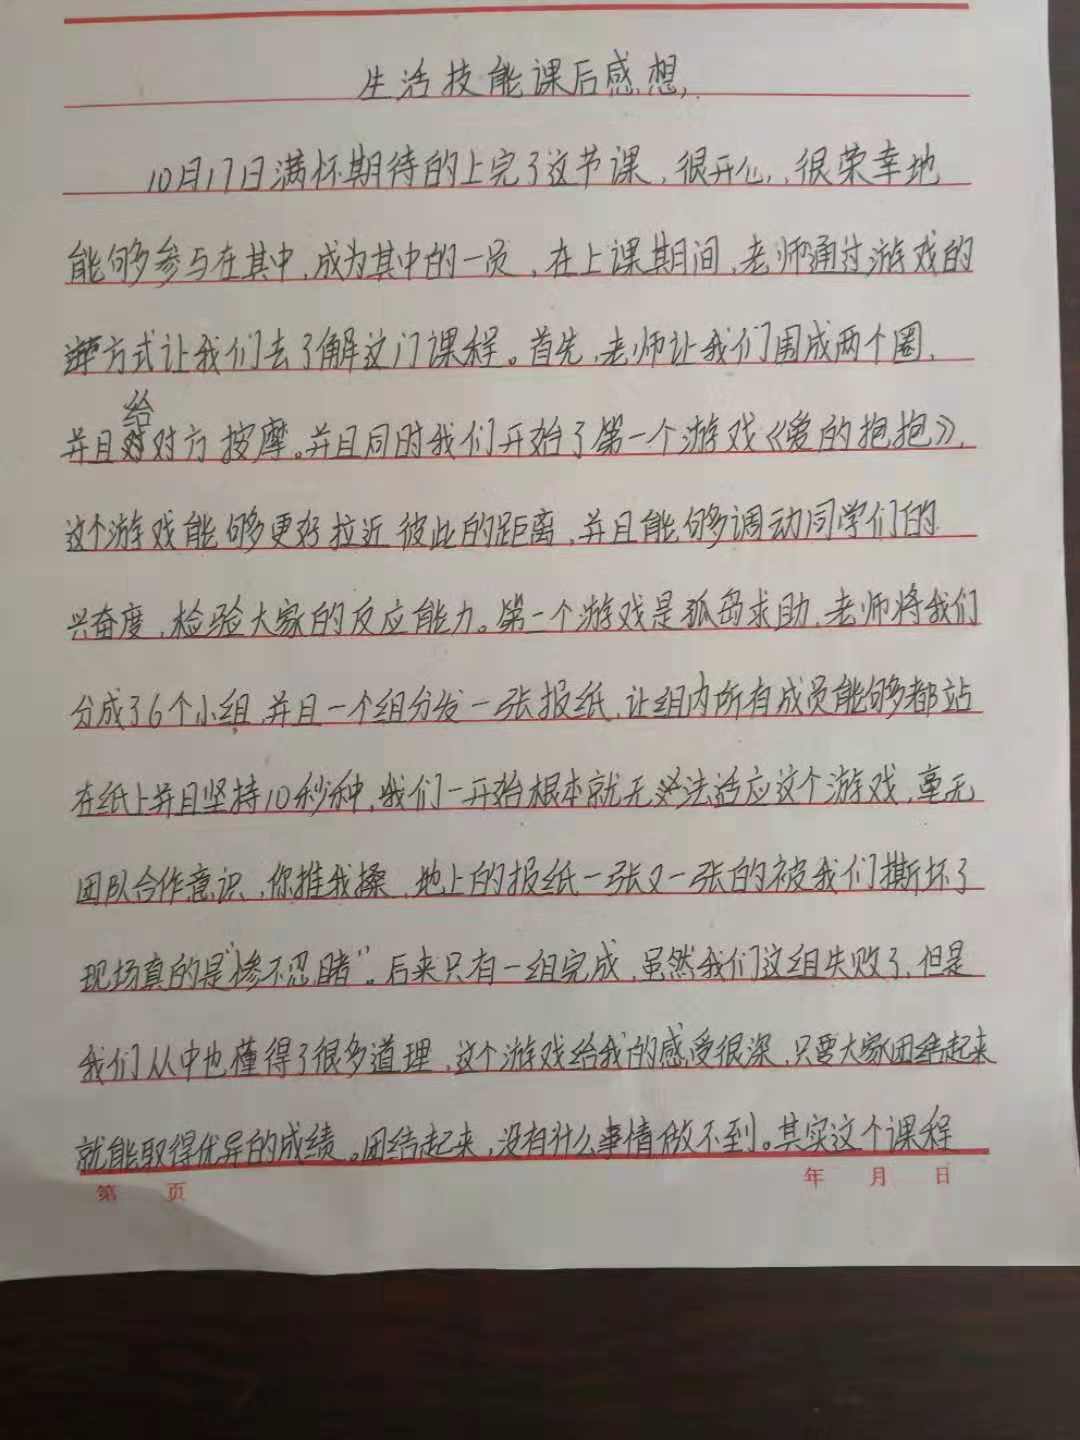 生活技能课后感想
10月17日满怀期待的上完了这节课，很开心，很荣幸地
能够参与在其中，成为其中的一员，在上课期间，老师通过游戏的
方式让我们去了解这门课程。首先，老师让我们围成两个圈，
并且给对方按摩。并且同时我们开始了第一个游戏《爱的抱抱》，
这个游戏能够更好拉近彼此的距离，并且能够调动同学们的
兴奋度，检验大家的反应能力。第二个游戏是孤岛求助，老师将我们
分成了6个小组，并且一个组分发一张报纸，让组内所有成员能够都站
在纸上并且坚持10秒种，我们一开始根本就无法适应这个游戏，毫无
团队合作意识，你推我搡，地上的报纸一张又一张的被我们撕坏了
现场真的是"惨不忍睹"。后来只有一组完成，虽然我们这组失败了，但是
我们从中也懂得了很多道理，这个游戏给我的感受很深，只要大家团结起来
就能取得优异的成绩。团结起来，没有什么事情做不到。其实这个课程
第 页 年 月 日